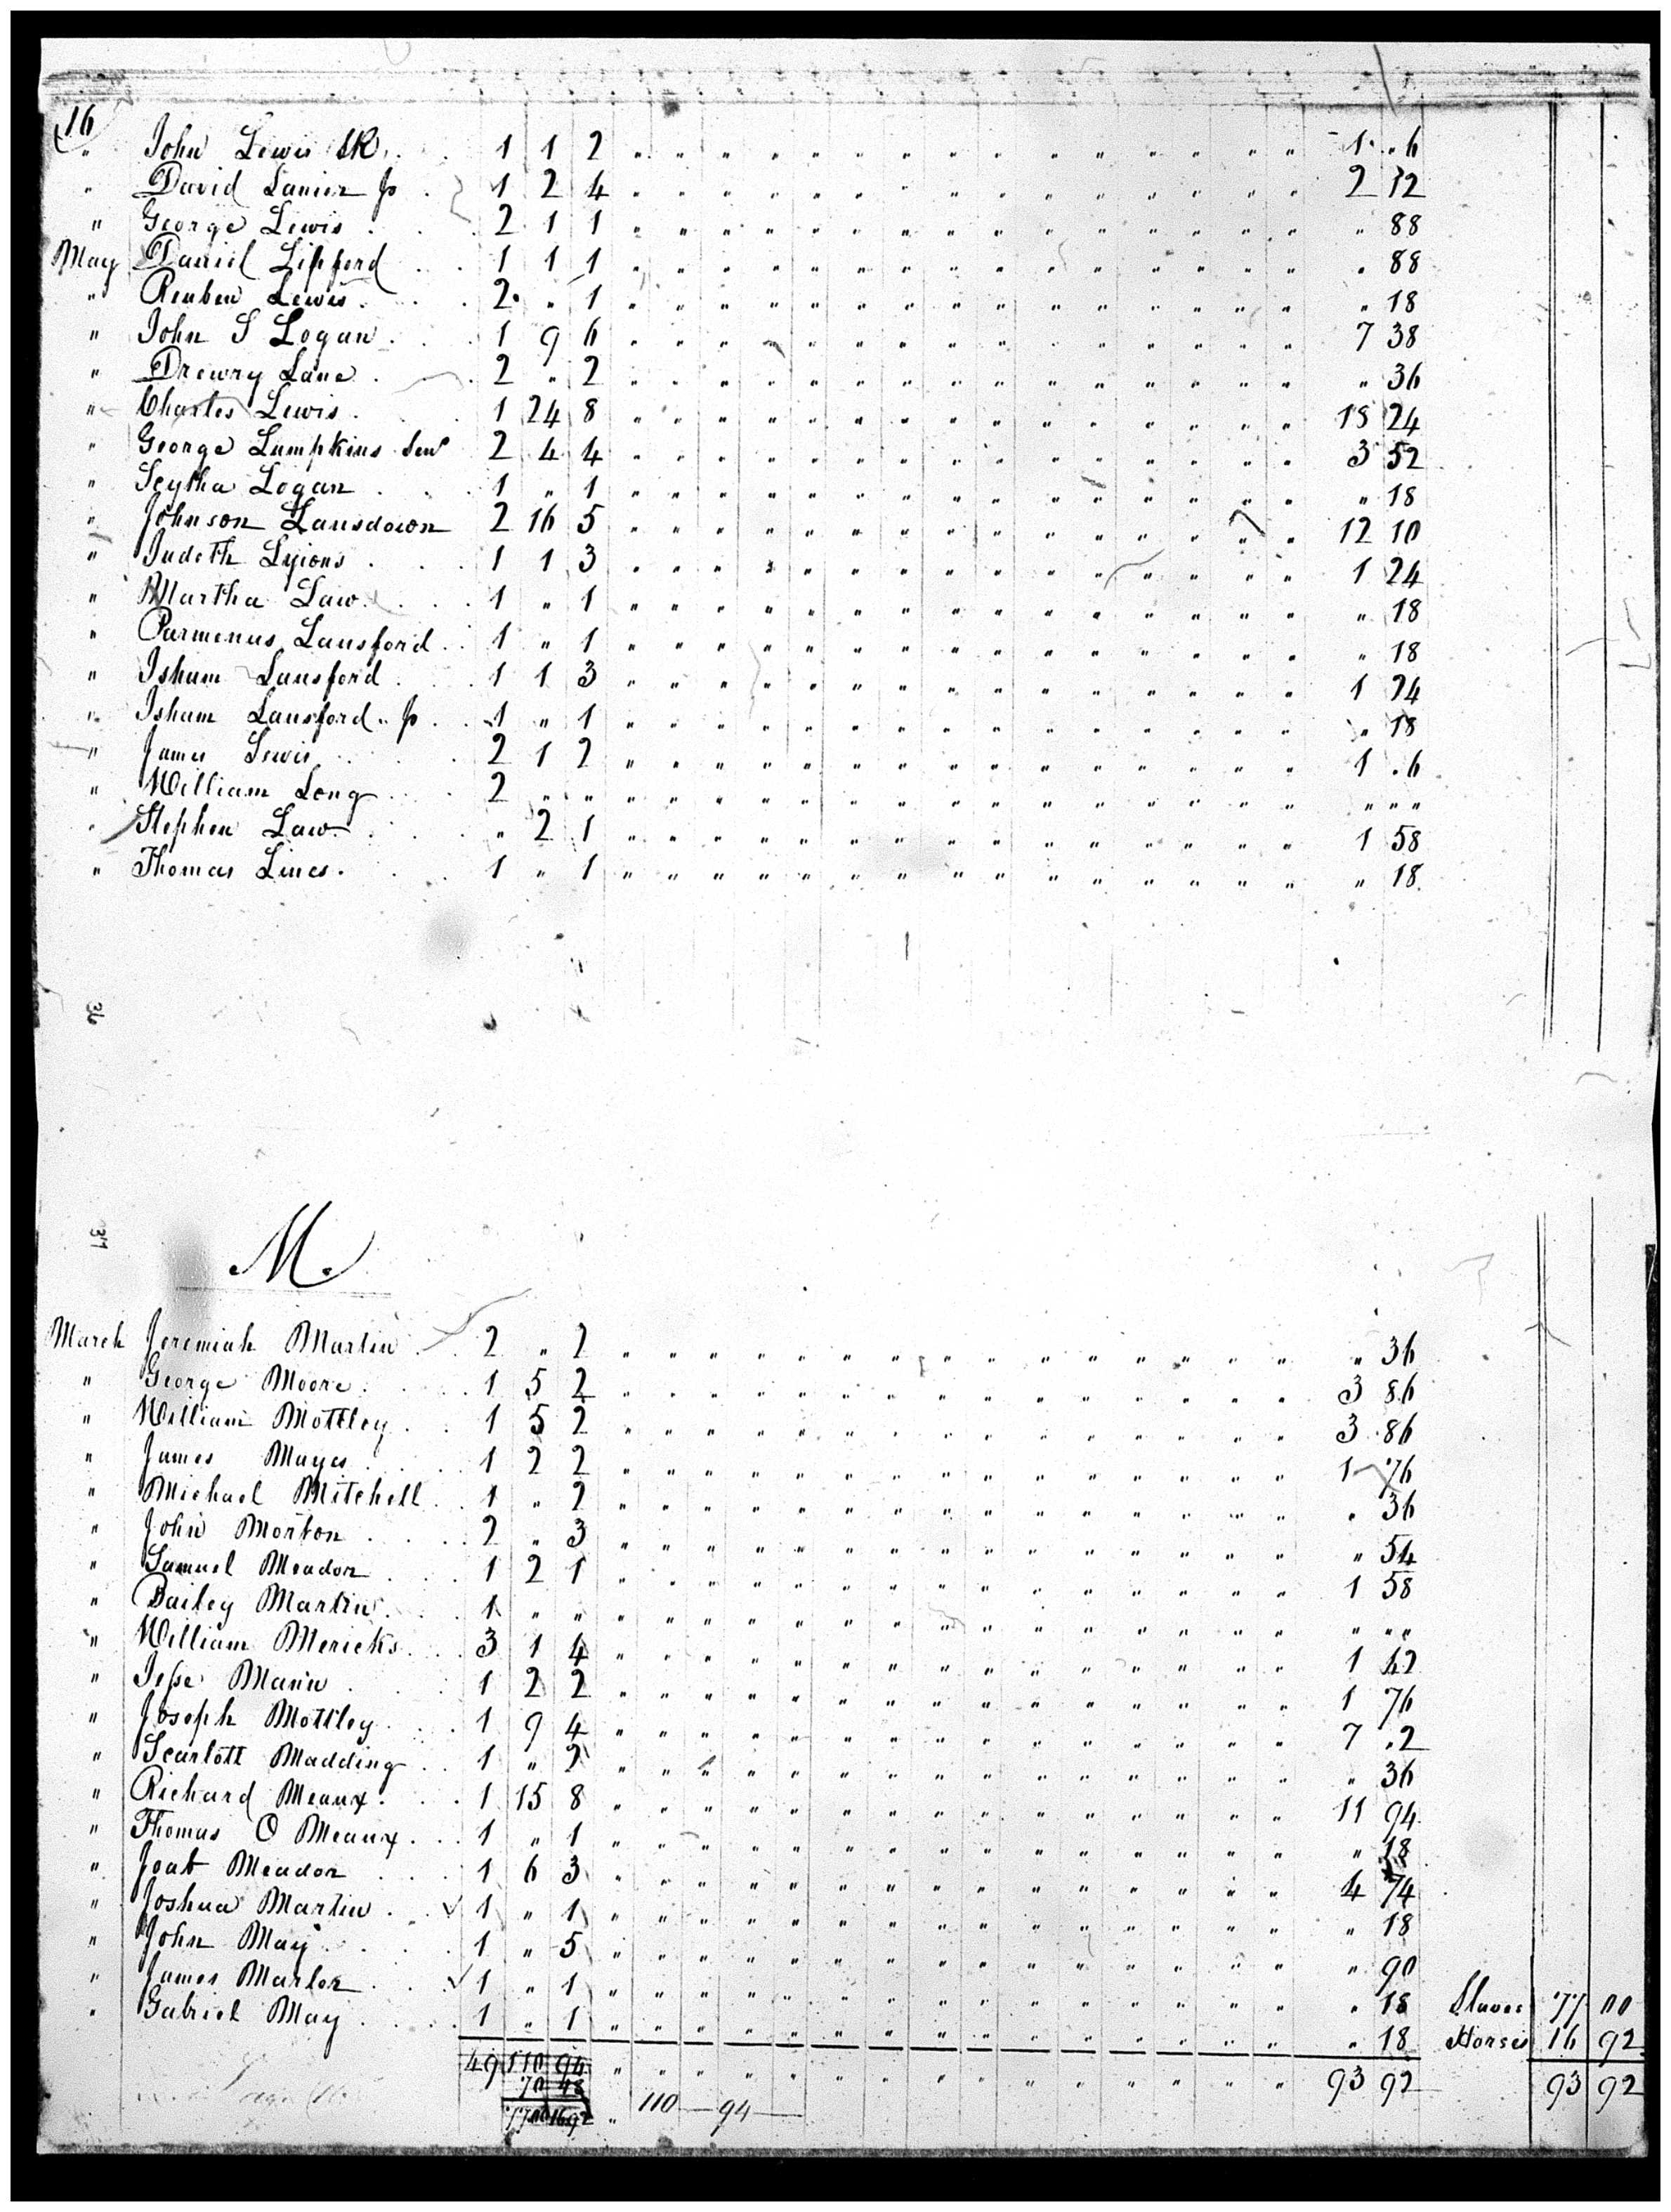 16
" John Lewis SR. 1 1 2 " " " " " " " " " " " " " " " 1 . 6
" David Lanier Jr 1 2 4 " " " " " " " " " " " " " " " 2 12
" George Lewis 2 1 1 " " " " " " " " " " " " " " " " 88
May Daniel Lipford 1 1 1 " " " " " " " " " " " " " " " " 88
" Reuben Lewis 2 " 1 " " " " " " " " " " " " " " " " 18
" John S Logan 1 9 6 " " " " " " " " " " " " " " " 7 38
" Drewry Lane 2 " 2 " " " " " " " " " " " " " " " " 36
" Charles Lewis 1 24 8 " " " " " " " " " " " " " " " 18 24
" George Lumpkins Senr 2 4 4 " " " " " " " " " " " " " " " 3 52
" Scytha Logan 1 " 1 " " " " " " " " " " " " " " " " 18
" Johnson Lansdown 2 16 5 " " " " " " " " " " " " " " " 12 10
" Judeth Lyions 1 1 3 " " " " " " " " " " " " " " " 1 24
" Martha Law 1 " 1 " " " " " " " " " " " " " " " " 18
" Parmenus Lansford 1 " 1 " " " " " " " " " " " " " " " " 18
" Isham Lansford 1 1 3 " " " " " " " " " " " " " " " 1 24
" Isham Lansford Jr 1 " 1 " " " " " " " " " " " " " " " " 18
" James Lewis 2 1 2 " " " " " " " " " " " " " " " 1 . 6
" William Long 2 " " " " " " " " " " " " " " " " " " " "
" Stephen Law " 2 1 " " " " " " " " " " " " " " " 1 58
" Thomas Lines 1 " 1 " " " " " " " " " " " " " " " " 18
36
37
M.
March Jeremiah Martin 2 " 2 " " " " " " " " " " " " " " " " 36
" George Moore 1 5 2 " " " " " " " " " " " " " " " 3 86
" William Mottley 1 5 2 " " " " " " " " " " " " " " " 3 86
" James Mayes 1 2 2 " " " " " " " " " " " " " " " 1 76
" Michael Mitchell 1 " 2 " " " " " " " " " " " " " " " " 36
" John Morton 2 " 3 " " " " " " " " " " " " " " " " 54
" Samuel Meador 1 2 1 " " " " " " " " " " " " " " " 1 58
" Bailey Martin 1 " " " " " " " " " " " " " " " " " " " "
" William Mericks 3 1 4 " " " " " " " " " " " " " " " 1 42
" Jesse Mann 1 2 2 " " " " " " " " " " " " " " " 1 76
" Joseph Mottley 1 9 4 " " " " " " " " " " " " " " " 7 . 2
" Scarlott Madding 1 " 2 " " " " " " " " " " " " " " " " 36
" Richard Meaux 1 15 8 " " " " " " " " " " " " " " " 11 94
" Thomas O Meaux 1 " 1 " " " " " " " " " " " " " " " " 18
" Joab Meador 1 6 3 " " " " " " " " " " " " " " " 4 74
" Joshua Martin 1 " 1 " " " " " " " " " " " " " " " " 18
" John May 1 " 5 " " " " " " " " " " " " " " " " 90
" James Marler 1 " 1 " " " " " " " " " " " " " " " " 18 Slaves 77 00
" Gabriel May 1 " 1 " " " " " " " " " " " " " " " " 18 Horses 16 92
49 110 94 " " " " " " " " " " " " " " " 93 92 93 92
70 18
7700 1692 " 110 — 94 —